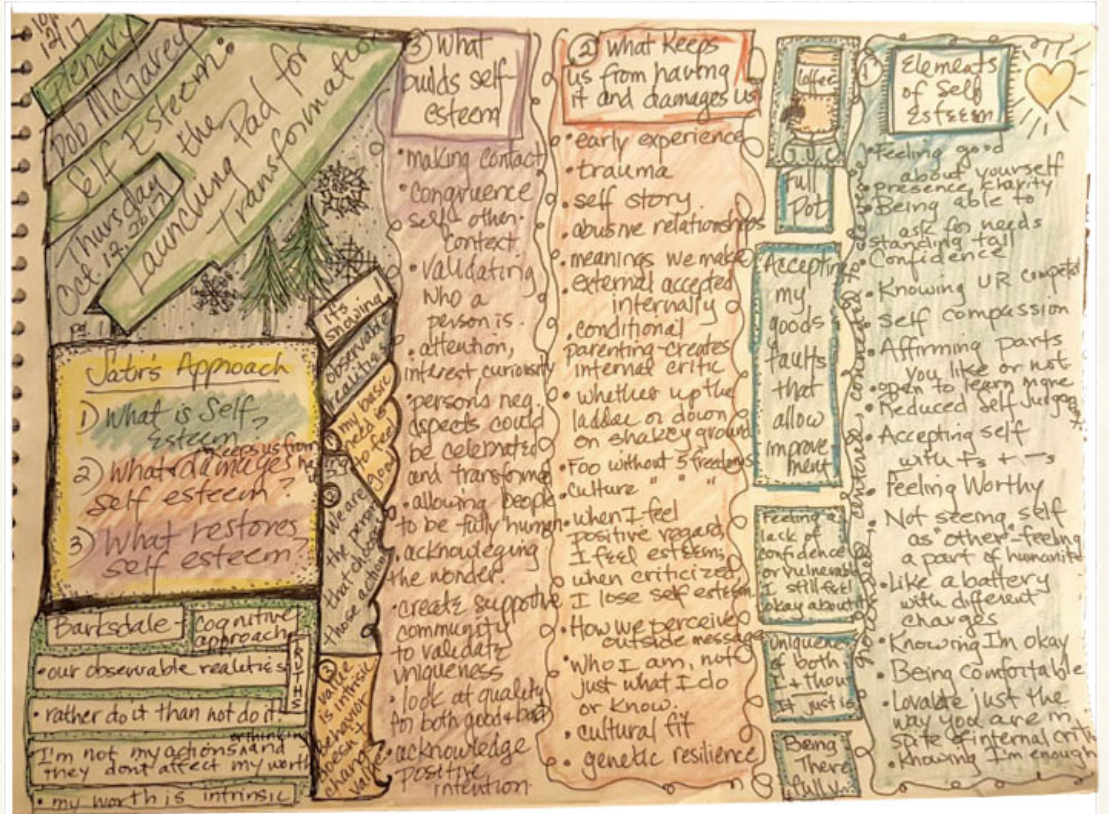 10/12/17
Plenary
Bob McGarey
Self Esteem:
the
Launching Pad for
Transformation
Thursday
Oct 12, 2017
pg. 1
Satir's Approach
1) What is Self
Esteem?
keeps us from
2) What damages
self esteem?
3) What restores
self esteem?
Barksdale-
cognitive
approach
TRUTHS
• our observable realities
• rather do it than not do it.
or thinking
I'm not my actions and
they don't affect my worth
• my worth is intrinsic
it's snowing
observable
realities
① my basic
need is
to feel
good
② We are
the person
that chooses
those actions
③ value
is intrinsic
behavior
doesn't
change
value
③ What
builds self-
esteem
• making contact
• congruence
• self other
context
• validating
who a
person is.
• attention,
interest curiosity
• person's neg.
aspects could
be celebrated
and transformed
• allowing people
to be fully human
• acknowleging
the wonder.
• create supportive
community
to validate
uniqueness
• look at quality
for both good + bad
• acknowledge
positive
intention
② What keeps
us from having
it and damages us
• early experience
• trauma
• self story
• abusive relationships
• meanings we make
• external accepted
internally
• conditional
parenting-creates
internal critic
• whether up the
ladder or down
on shakey ground
• Foo without 5 freedoms
• Culture " " "
• when I feel
positive regard,
I feel esteem;
when criticized,
I lose self esteem
• How we perceive
outside message
• Who I am, not
just what I do
or know.
• cultural fit
• genetic resilience
Coffee
Full
Pot
Accepting
my
goods
faults
that
allow
improve
ment
Feeling a
lack of
confidence
or vulnerable
I still feel
okay about it
Uniqueness
of both
I + thou
It just is
Being
There
fully
① Elements
of Self
Esteem
• Feeling good
about yourself
• presence, clarity
• Being able to
ask for needs
• standing tall
• Confidence
grounded, centered, connected to
• Knowing UR competent
• Self compassion
• Affirming parts
you like or not
• open to learn more
• Reduced Self Judge
• Accepting self
with +s + -s
• Feeling Worthy
• Not seeing self
as other-feeling
a part of humanity
• Like a battery
with different
charges
• Knowing I'm okay
• Being comfortable
• Lovable just the
way you are in
spite of internal critic
• Knowing I'm enough